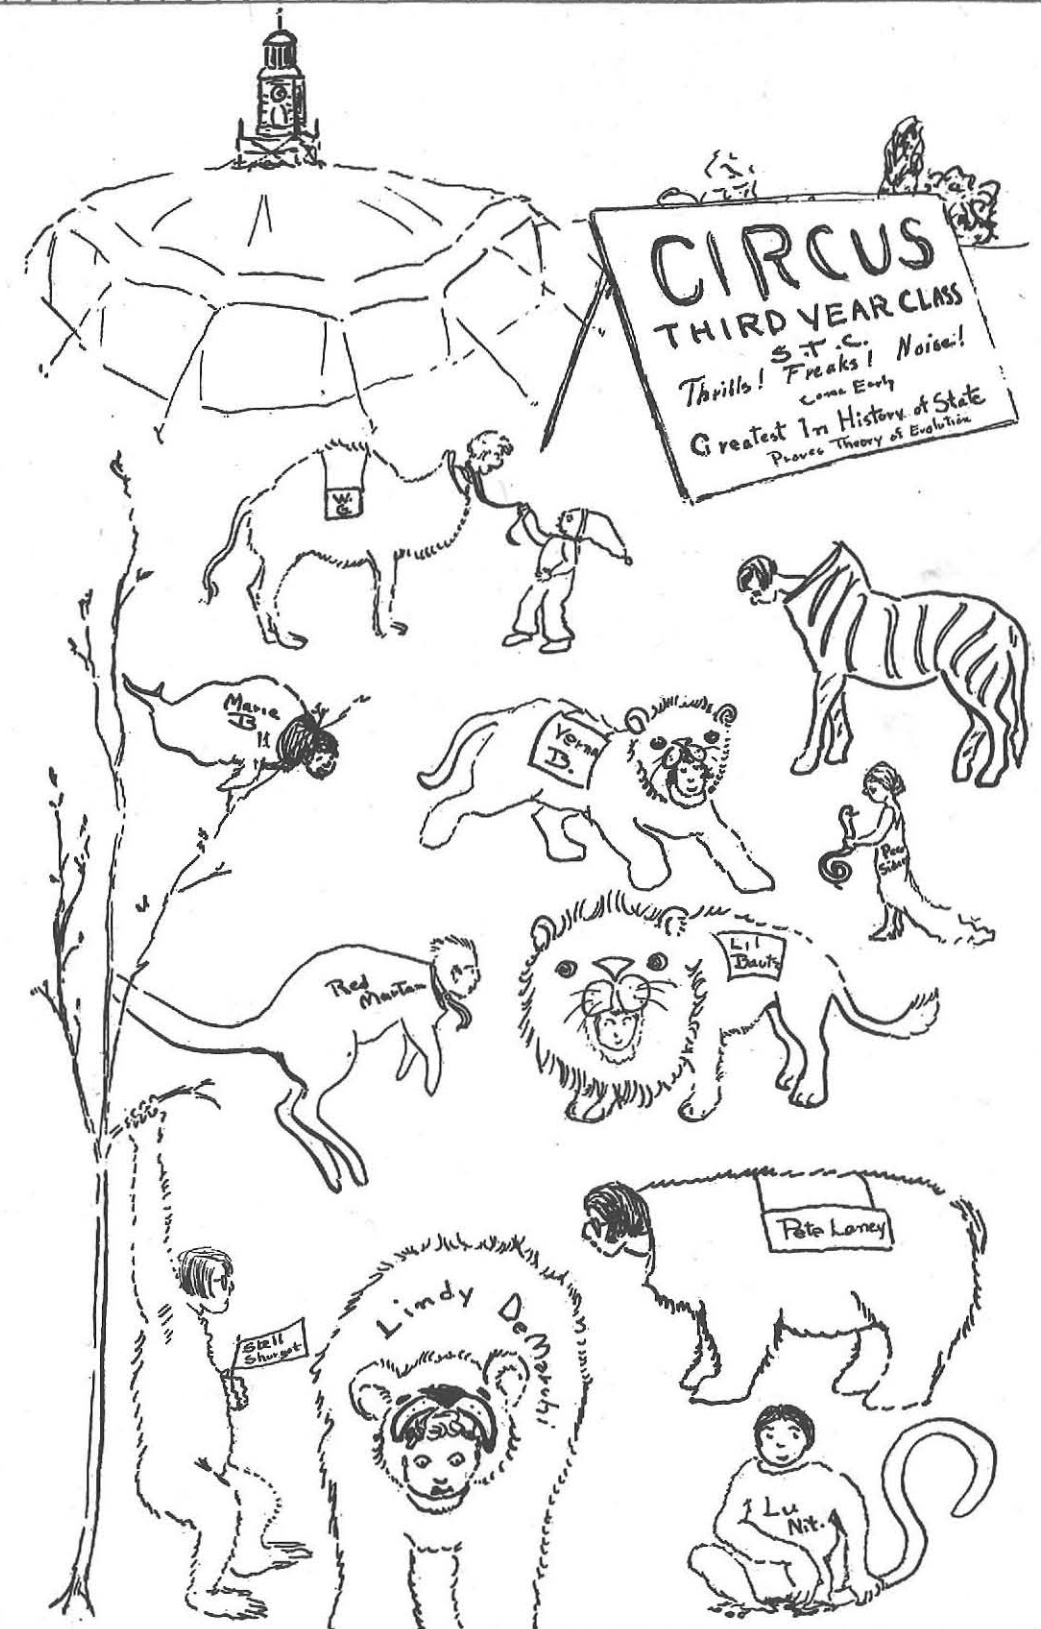 CIRCUS
THIRD YEAR CLASS
S.T.C.
Thrills! Freaks! Noise!
Come Early
Greatest In History of State
Proves Theory of Evolution
W.
G.
Marie
B.
Verna
B.
Lil
Bautz
Red
Pete Laney
Stell
Lindy DeMaruhi
Lu
Nit.